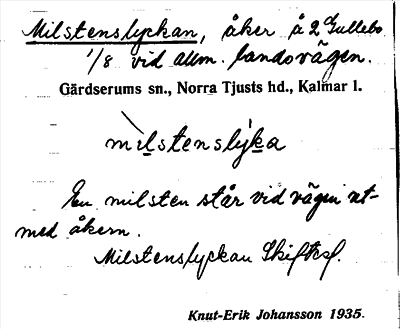 Milstenslyckan, åker å 2 Gullebo
1/8 vid allm. landsvägen.
Gärdserums sn., Norra Tjusts hd., Kalmar l.
mìlstenslýka
En milsten står vid vägen ut-
med åkern.
Milstenslyckan Skiftesf.
Knut-Erik Johansson 1935.